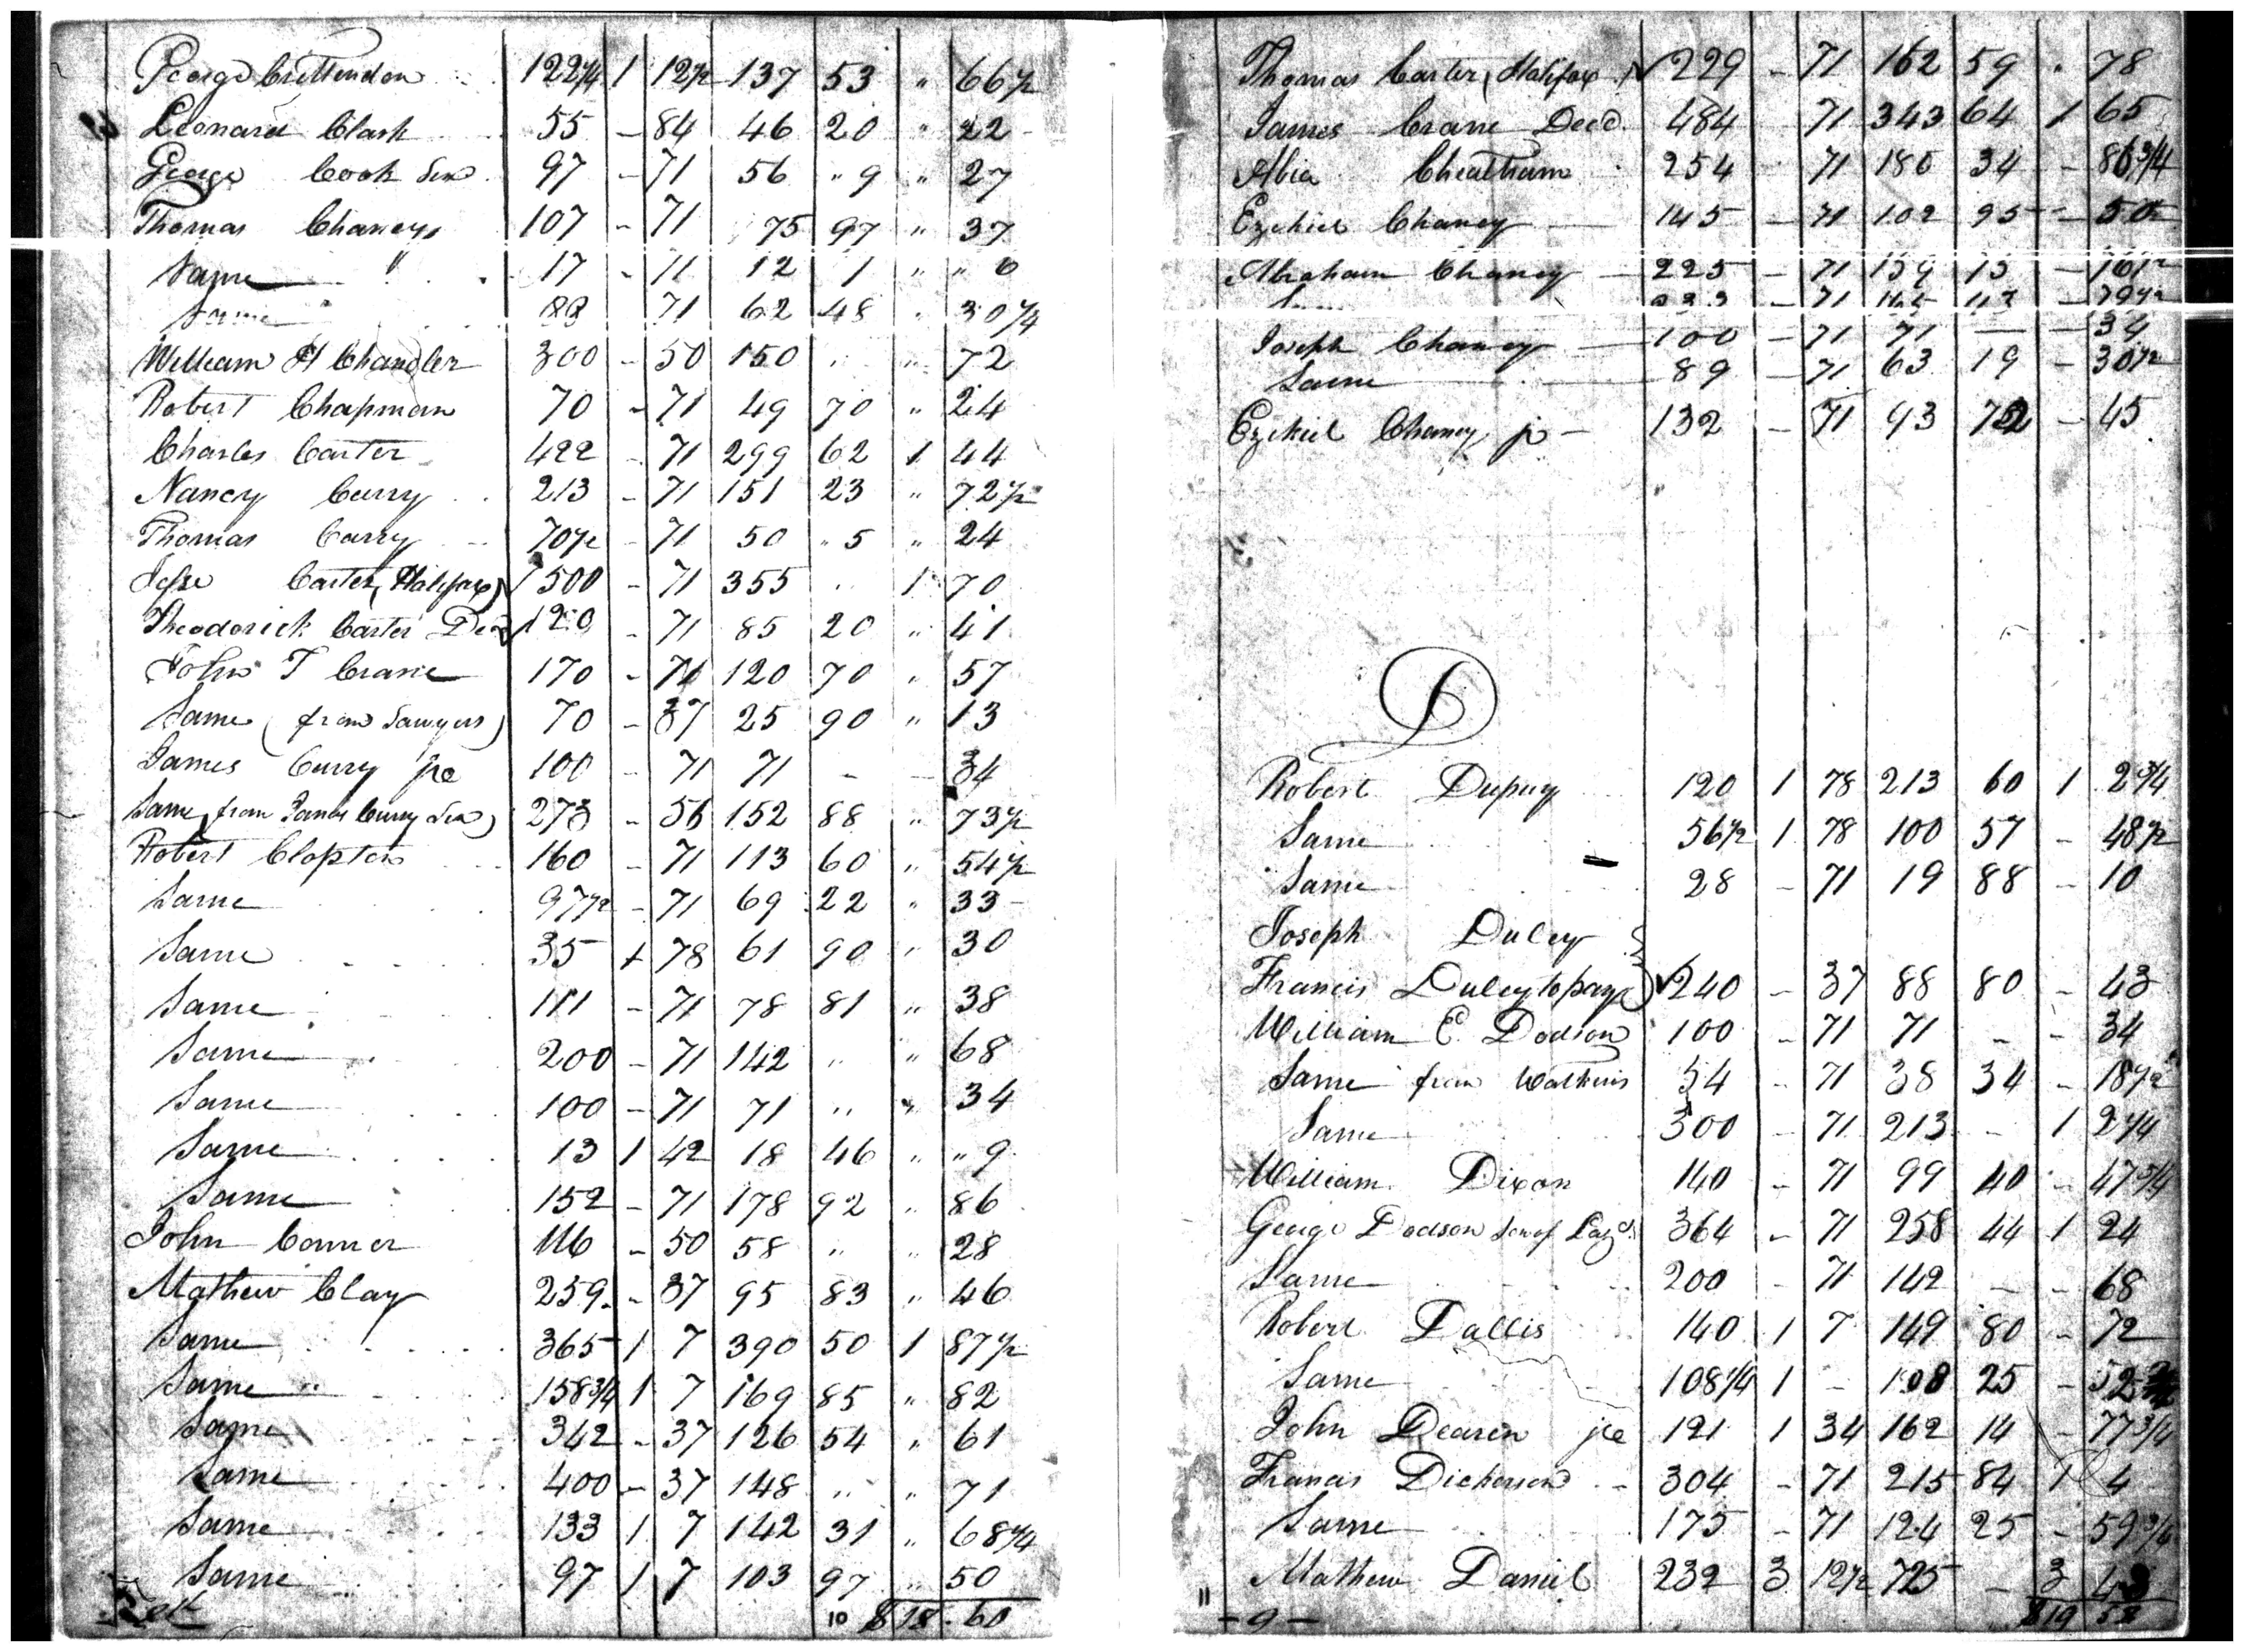 George Crittenden 122 1/4 1 12 1/2 137 53 " 66 1/2
Leonard Clark 55 - 84 46 20 " 22
George Cook Sen 97 - 71 56 " 9 " 27
Thomas Chaney 107 - 71 75 97 " 37
Same " 17 - 71 12 1 " " 6
Same 88 71 62 48 " 30 1/4
William H Chandler 300 - 50 150 " " 72
Robert Chapman 70 - 71 49 70 " 24
Charles Carter 422 - 71 299 62 1 44
Nancy Curry 213 - 71 151 23 " 72 1/2
Thomas Curry 70 1/2 - 71 50 " 5 " 24
Jesse Carter (Halifax) 500 - 71 355 " 1 70
Theodorick Carter Decd 120 - 71 85 20 " 41
John T Crane 170 - 71 120 70 " 57
Same (from Sawyers) 70 - 37 25 90 " 13
James Curry jr 100 - 71 71 - - 34
Same (from James Curry Sen) 273 - 56 152 88 " 73 1/2
Robert Clopton 160 - 71 113 60 " 54 1/2
Same 97 1/2 - 71 69 22 " 33 -
Same 35 1 78 61 90 " 30
Same 111 - 71 78 81 " 38
Same 200 - 71 142 " " 68
Same 100 - 71 71 " " 34
Same 13 1 42 18 46 " " 9
Same 152 - 71 178 92 " 86
John Conner 116 - 50 58 " " 28
Mathew Clay 259 - 37 95 83 " 46
Same 365 1 7 390 50 1 87 1/2
Same " 158 3/4 1 7 169 85 " 82
Same 342 - 37 126 54 " 61
Same 400 - 37 148 " " 71
Same 133 1 7 142 31 " 68 1/4
Same 97 1 7 103 97 " 50
10 $ 18 . 60
Thomas Carter (Halifax) 229 - 71 162 59 " 78
James Crane Decd 484 71 343 64 1 65
Abia Cheatham 254 71 180 34 - 86 3/4
Ezekiel Chaney 145 - 71 102 95 - 50
Abraham Chaney 225 - 71 159 75
Same 233 - 71 165 43 - 79 1/2
Joseph Chaney 100 - 71 71 - - 34
Same 89 - 71 63 19 - 30 1/2
Ezekiel Chaney jr - 132 - 71 93 72 - 45
D
Robert Dupuy 120 1 78 213 60 1 2 3/4
Same 56 1/2 1 78 100 57 - 48 1/2
Same 28 - 71 19 88 - 10
Joseph Duley }
Francis Duley to pay } 240 - 37 88 80 - 43
William C. Dodson 100 - 71 71 - - 34
Same from Watkins 54 - 71 38 34 - 18 1/2
Same 300 - 71 213 - 1 2 1/4
William Dixon 140 - 71 99 40 - 47 3/4
George Dodson son of Lazs. 364 - 71 258 44 1 24
Same 200 - 71 142 - - 68
Robert Dallis 140 1 7 149 80 - 72
Same 108 1/4 1 - 108 25 - 52
John Dearen jr 121 1 34 162 14 - 77 3/4
Francis Dickerson - 304 - 71 215 84 1 4
Same 175 - 71 124 25 - 59 3/4
Mathew Daniel 232 3 12 1/2 725 - 3 48
11 - 9 - $ 19 52